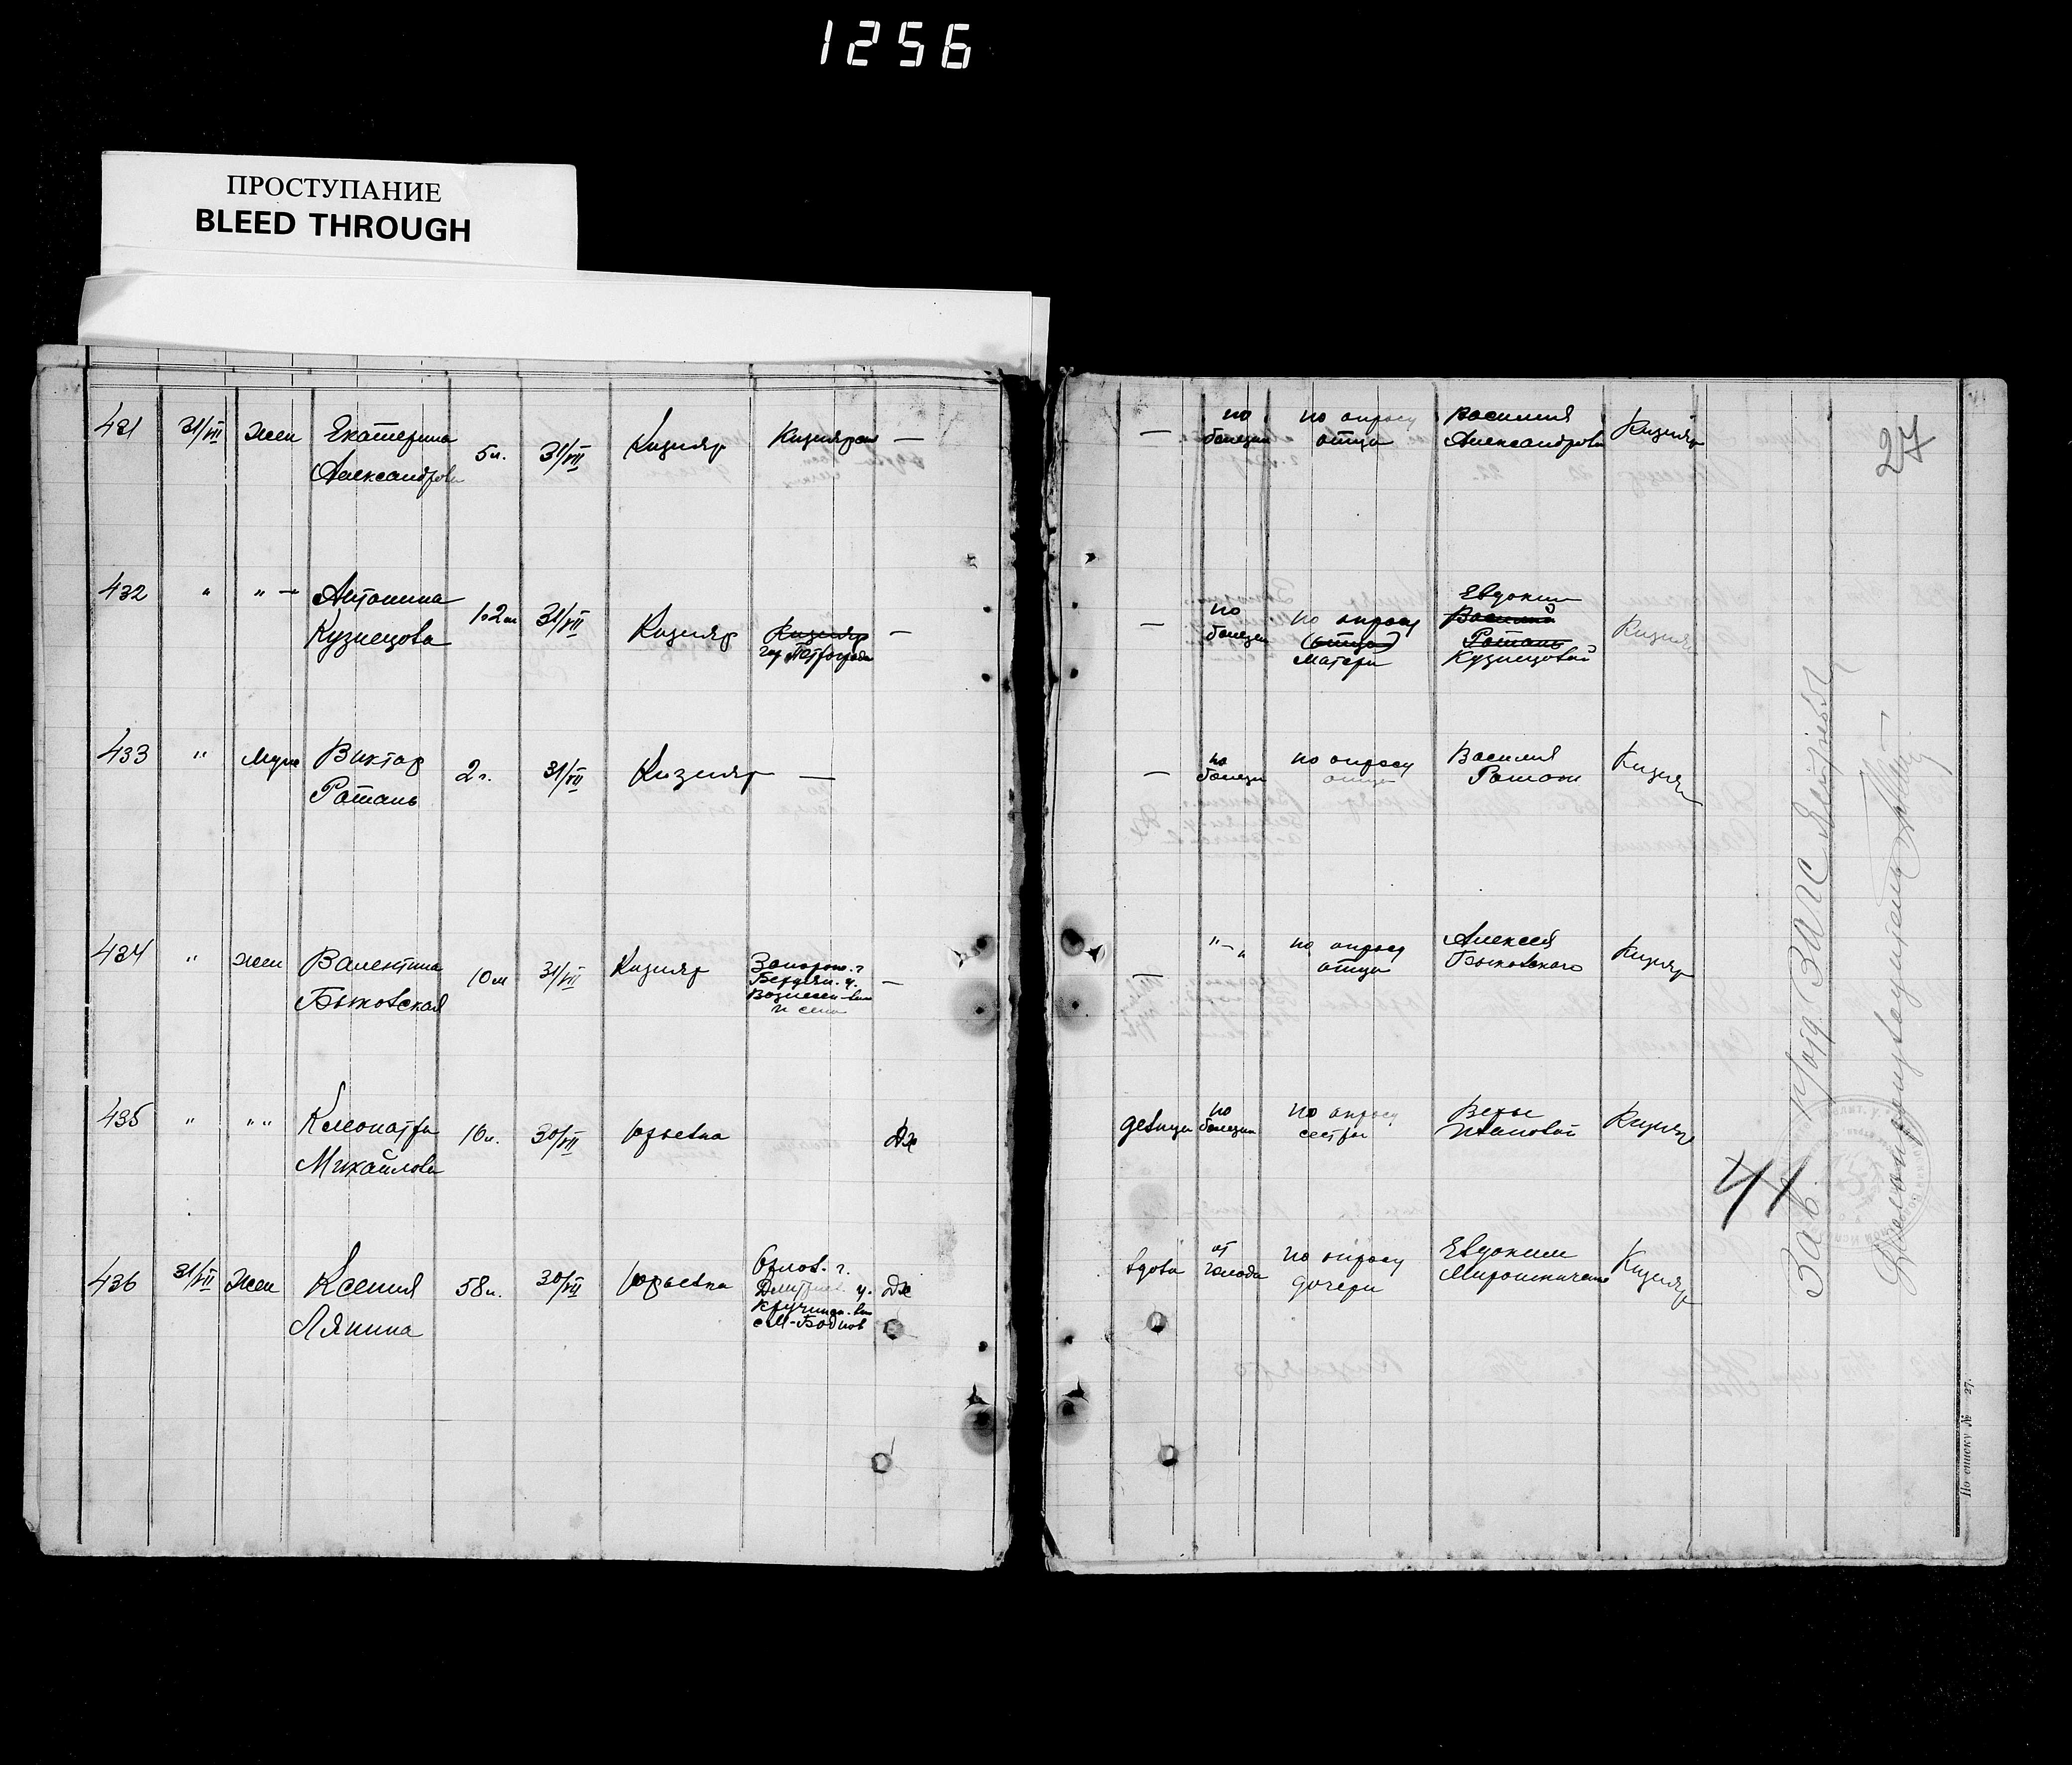 1256
ПРОСТУПАНИЕ
BLEED THROUGH
27
431 31/VII жен Екатерина Александрова 5 л. 31/VII Кизияр Кизияр —
— по болезни по опросу отца Василия Александрова Кизияр
432 " " — Антонина Кузнецова 31/VII Кизияр Кизияр гор Петрограда —
— по болезни по опросу (отца) матери Евдокии Василия Ротань Кузнецовой Кизияр
433 " муж Виктор Ротань 2 г. 31/VII Кизияр —
— по болезни по опросу отца Василия Ротань Кизияр
434 " жен Валентина Быковская 10 м 31/VII Кизияр Запорож. г. Бердян. у. —
— " — " по опросу отца Алексея Быковского Кизияр
435 " " " Клеопатра Михайлова 30/VII Юрьевка Дх
девица по болезни по опросу сестры Веры Кизияр
436 31/VII Жен Ксения Ляпина 58 л. 30/VII Юрьевка Орлов. г. Дмитриев. у. Дх
вдова от голода по опросу дочери Евдокии Мирошниченко Кизияр
41
Зав. ЗАГС
Делопроизводитель
По списку № 27.